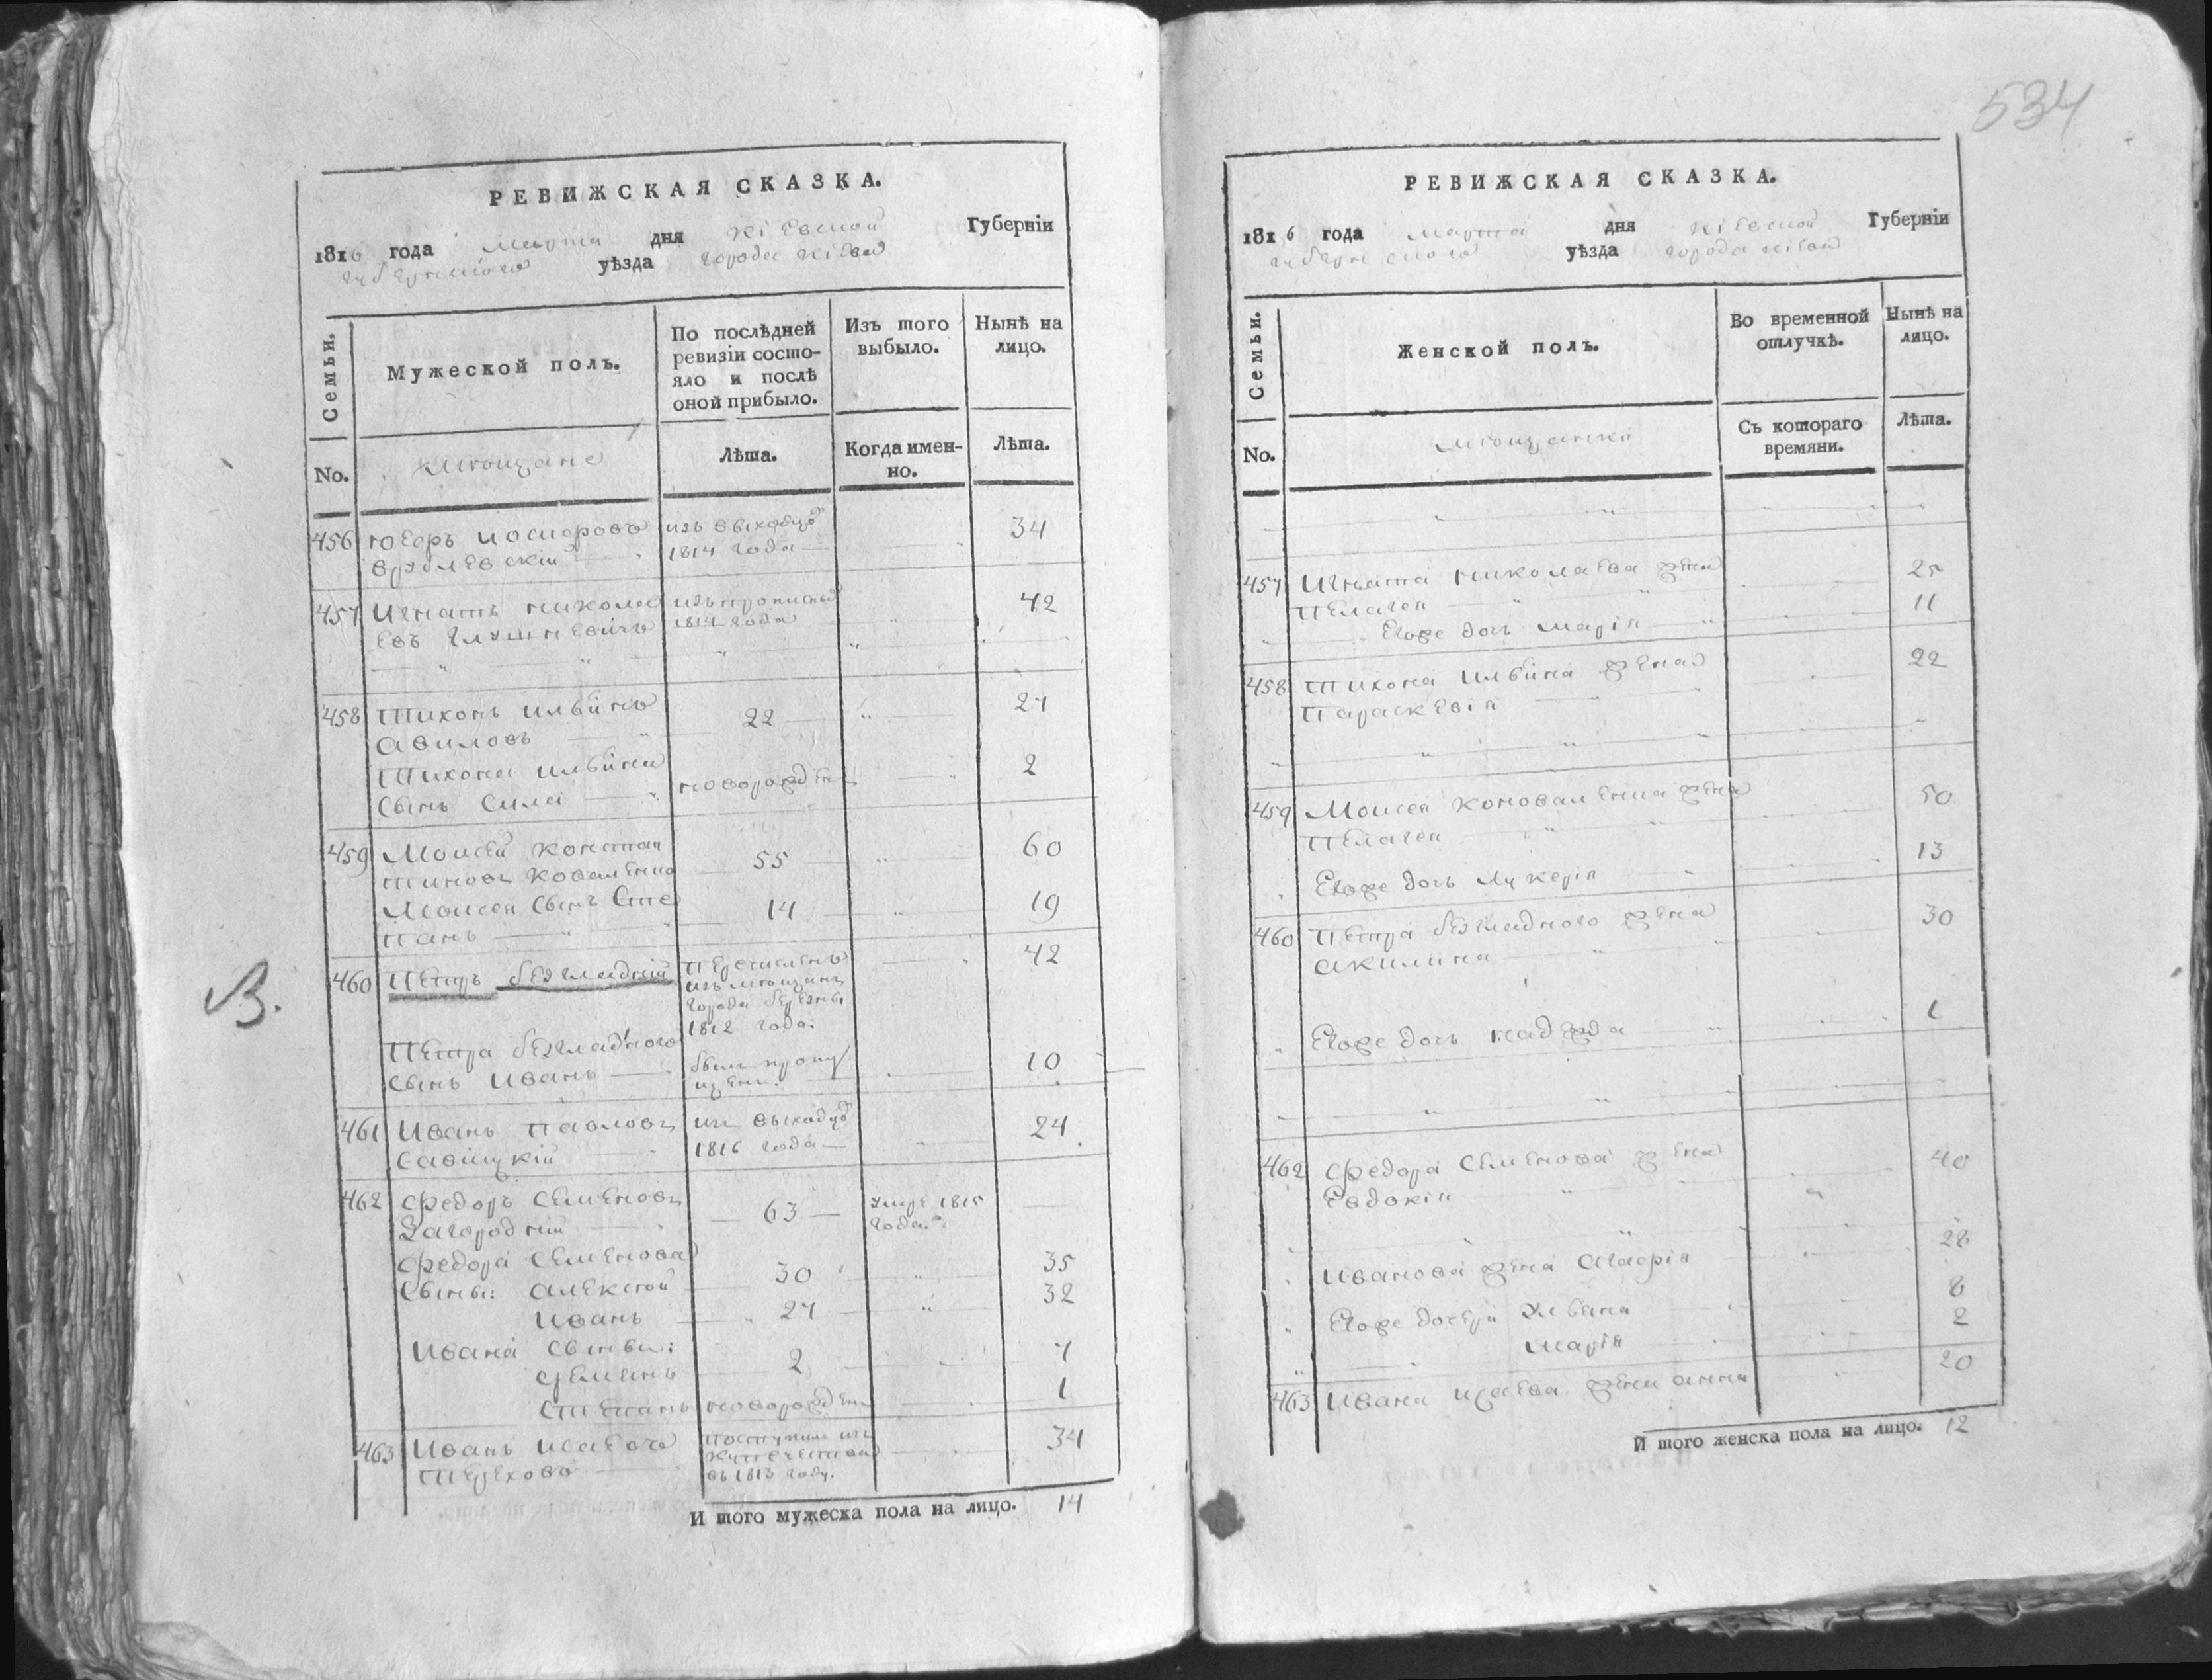 534
РЕВИЖСКАЯ СКАЗКА.
1816 года марта дня Кіевской Губерніи
губернского уѣзда города Кіева
Семьи.
Мужеской полъ.
По послѣдней ревизіи состо-
яло и послѣ
оной прибыло.
Изъ того выбыло.
Нынѣ на лицо.
No.
мѣщане
Лѣта.
Когда имен-
но.
Лѣта.
456 Юсифъ Иосифовъ изъ выходцовъ 34
Врублевскій 1814 года
457 Игнатъ Никола изъ прописных 42
евъ Глушневичъ 1814 года
458 Тихонъ Ильинъ 22 27
Авиловъ
Тихона Ильина новорожден 2
сынъ Сила
459 Моисей Констан 55 60
тиновъ Коваленко
Моисея сынъ Сте 14 19
панъ
В.
460 Петръ Безгладній перечисленъ 42
изъ мѣщанъ
города Березны
1812 года.
Петра Безгладного былъ пропу 10
сынъ Иванъ щенъ.
461 Иванъ Павловъ изъ выходцовъ 24
Савицкій 1816 года
462 Федоръ Семеновъ 63 умре 1815
Загородній года.
Федора Семенова
сыны: Алексей 30 35
Иванъ 27 32
Ивана сыны:
Семенъ 2 7
Степанъ новорожден 1
463 Иванъ Исаевъ поступилъ изъ 34
Тереховъ купечества
въ 1813 году.
И того мужеска пола на лицо. 14
РЕВИЖСКАЯ СКАЗКА.
1816 года марта дня Кіевской Губерніи
губернского уѣзда города Кіева
Семьи.
Женской полъ.
Во временной отлучкѣ.
Нынѣ на лицо.
No.
мѣщанки
Съ котораго времяни.
Лѣта.
457 Игната Николаева жена 25
Пелагея
Егоже дочь Марія 11
458 Тихона Ильина жена 22
Параскевія
459 Моисея Коноваленка жена 50
Пелагея
Егоже дочь Лукерія 13
460 Петра Безгладного жена 30
Акилина
Егоже дочь Надежда 1
462 Федора Семенова жена 40
Евдокія
Иванова жена Агафія 28
Егоже дочери Ульяна 8
Марія 2
463 Ивана Исаева жена Анна 20
И того женска пола на лицо. 12